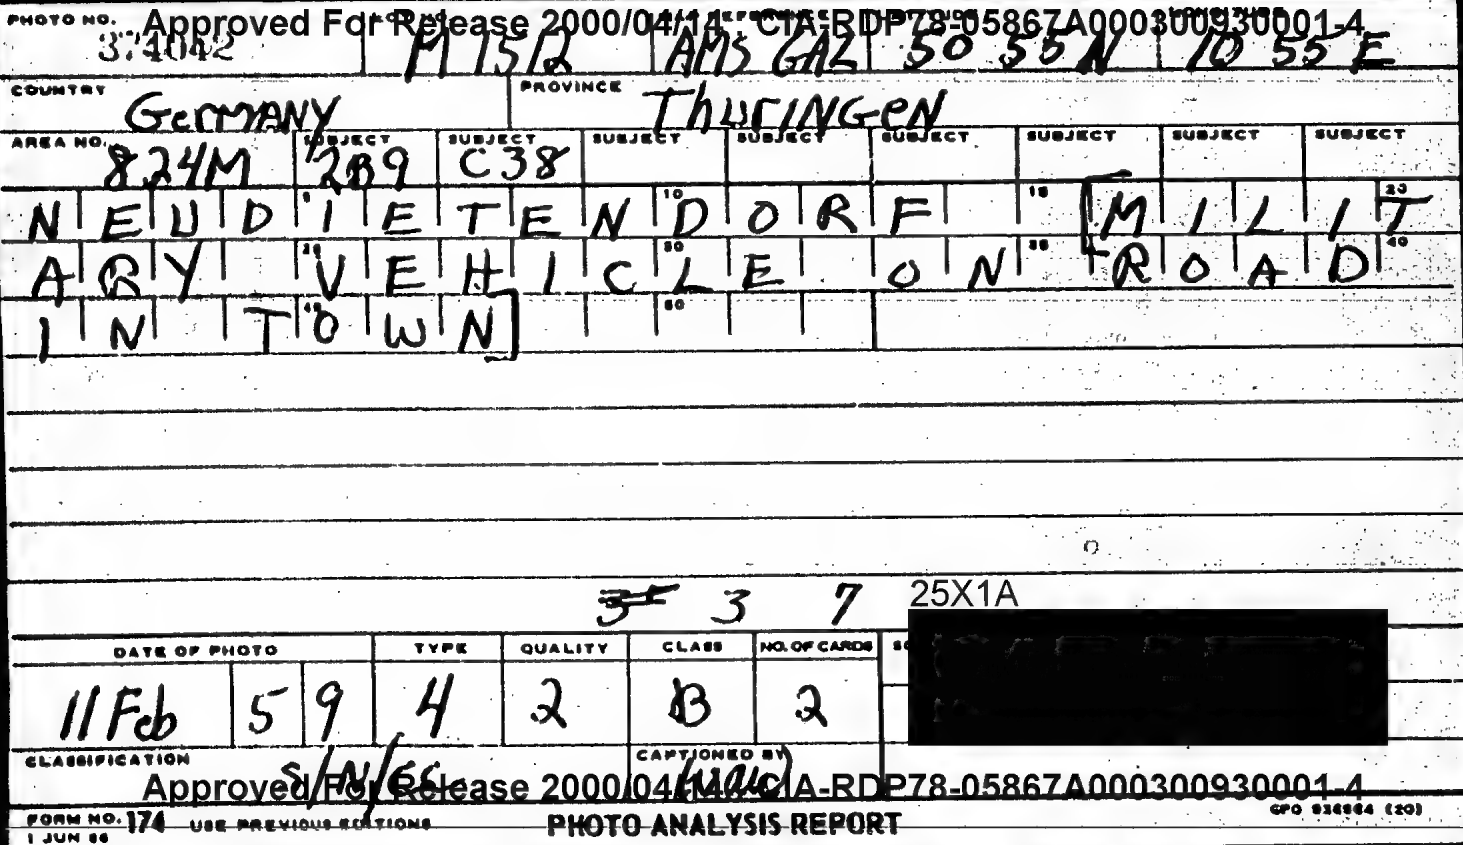 PHOTO NO. Approved For Release 2000/04/14 : CIA-RDP78-05867A000300930001-4
374042 M 1512 AMS GAZ 50 55 N 10 55 E
COUNTRY Germany PROVINCE Thuringen
AREA NO. 824M SUBJECT 2B9 SUBJECT C38 SUBJECT SUBJECT SUBJECT SUBJECT SUBJECT SUBJECT
NEUDIETENDORF [MILIT
ARY VEHICLE ON ROAD
IN TOWN]
3 3 7 25X1A
DATE OF PHOTO TYPE QUALITY CLASS NO. OF CARDS
11 Feb 59 4 2 B 2
CLASSIFICATION CAPTIONED BY
Approved For Release 2000/04/14 : CIA-RDP78-05867A000300930001-4
FORM NO. 174 USE PREVIOUS EDITIONS PHOTO ANALYSIS REPORT
1 JUN 56